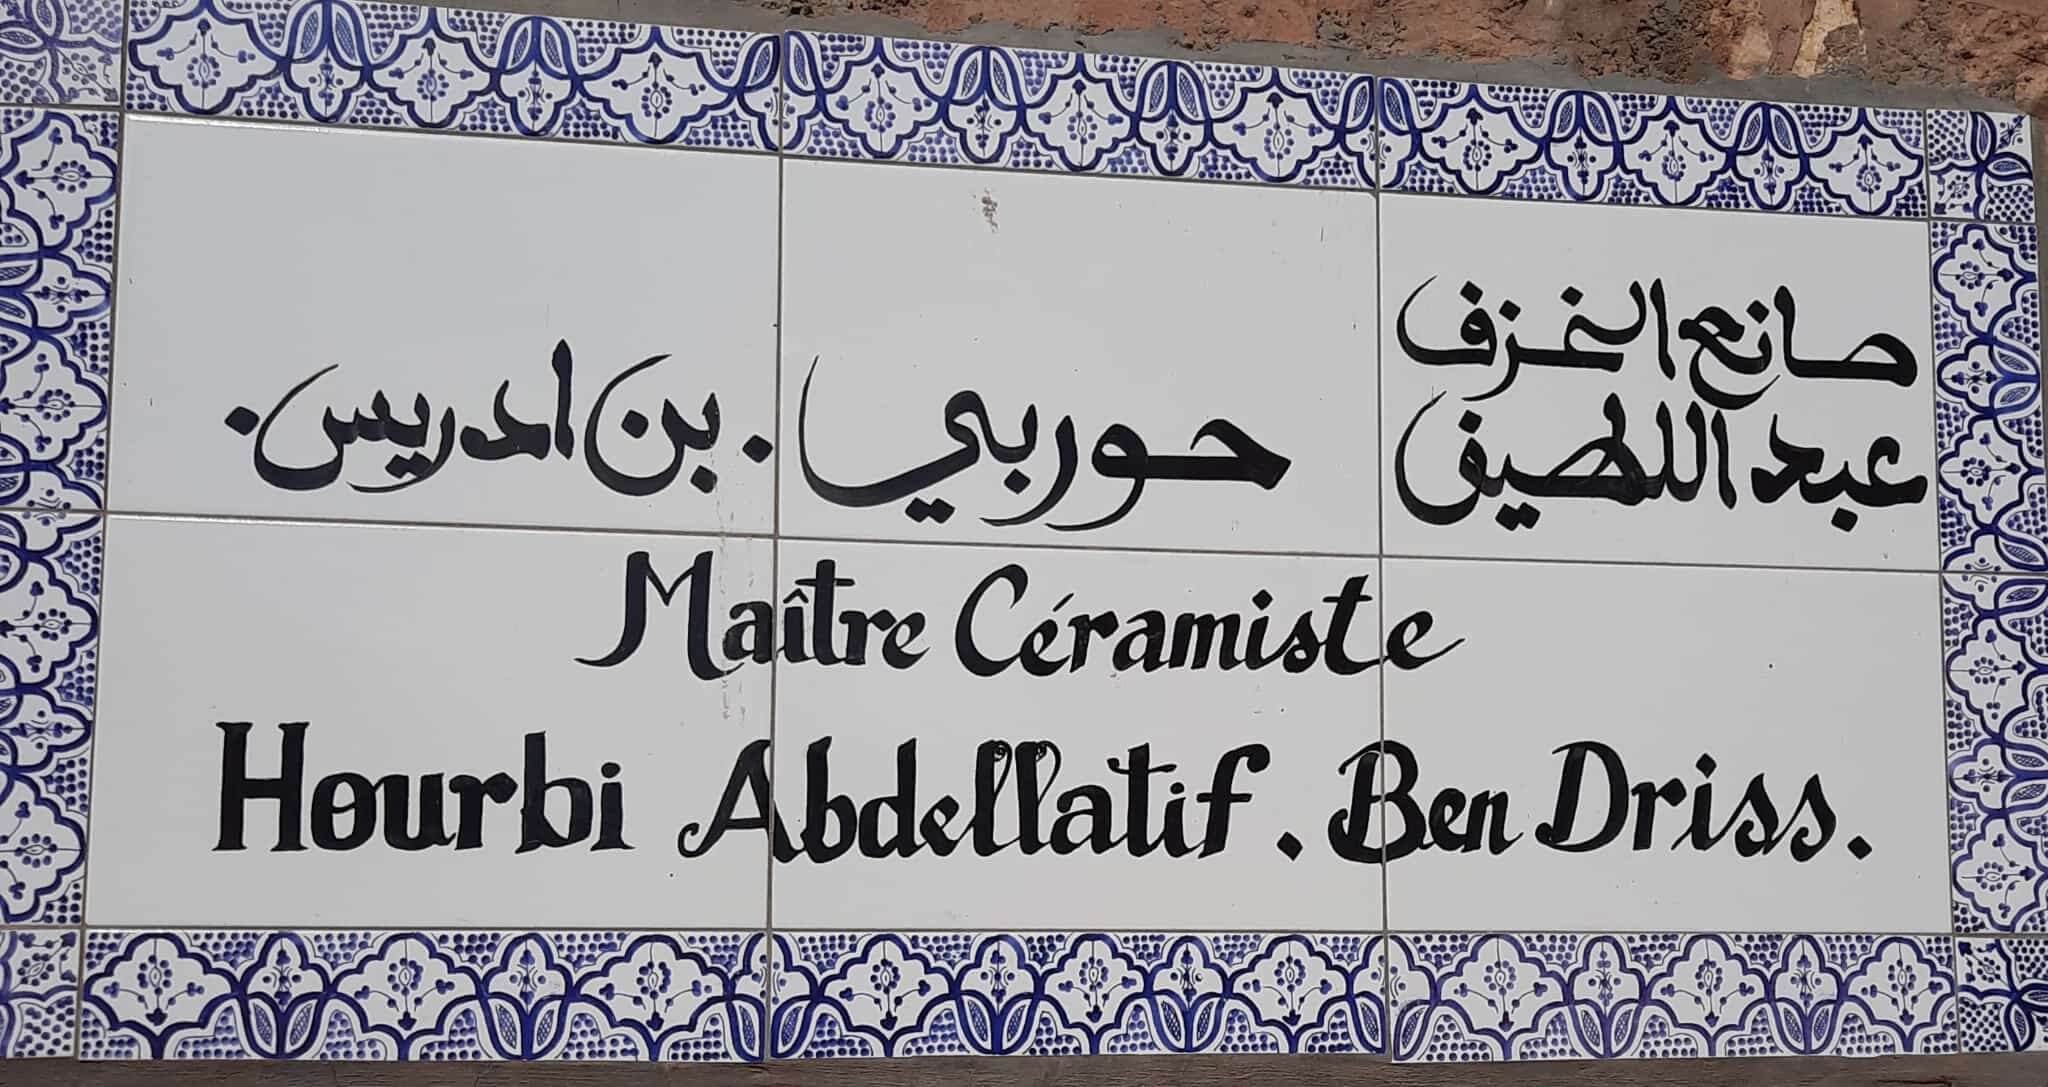 صانع الخزف
عبد اللطيف حوربي . بن ادريس .
Maître Céramiste
Hourbi Abdellatif . Ben Driss .